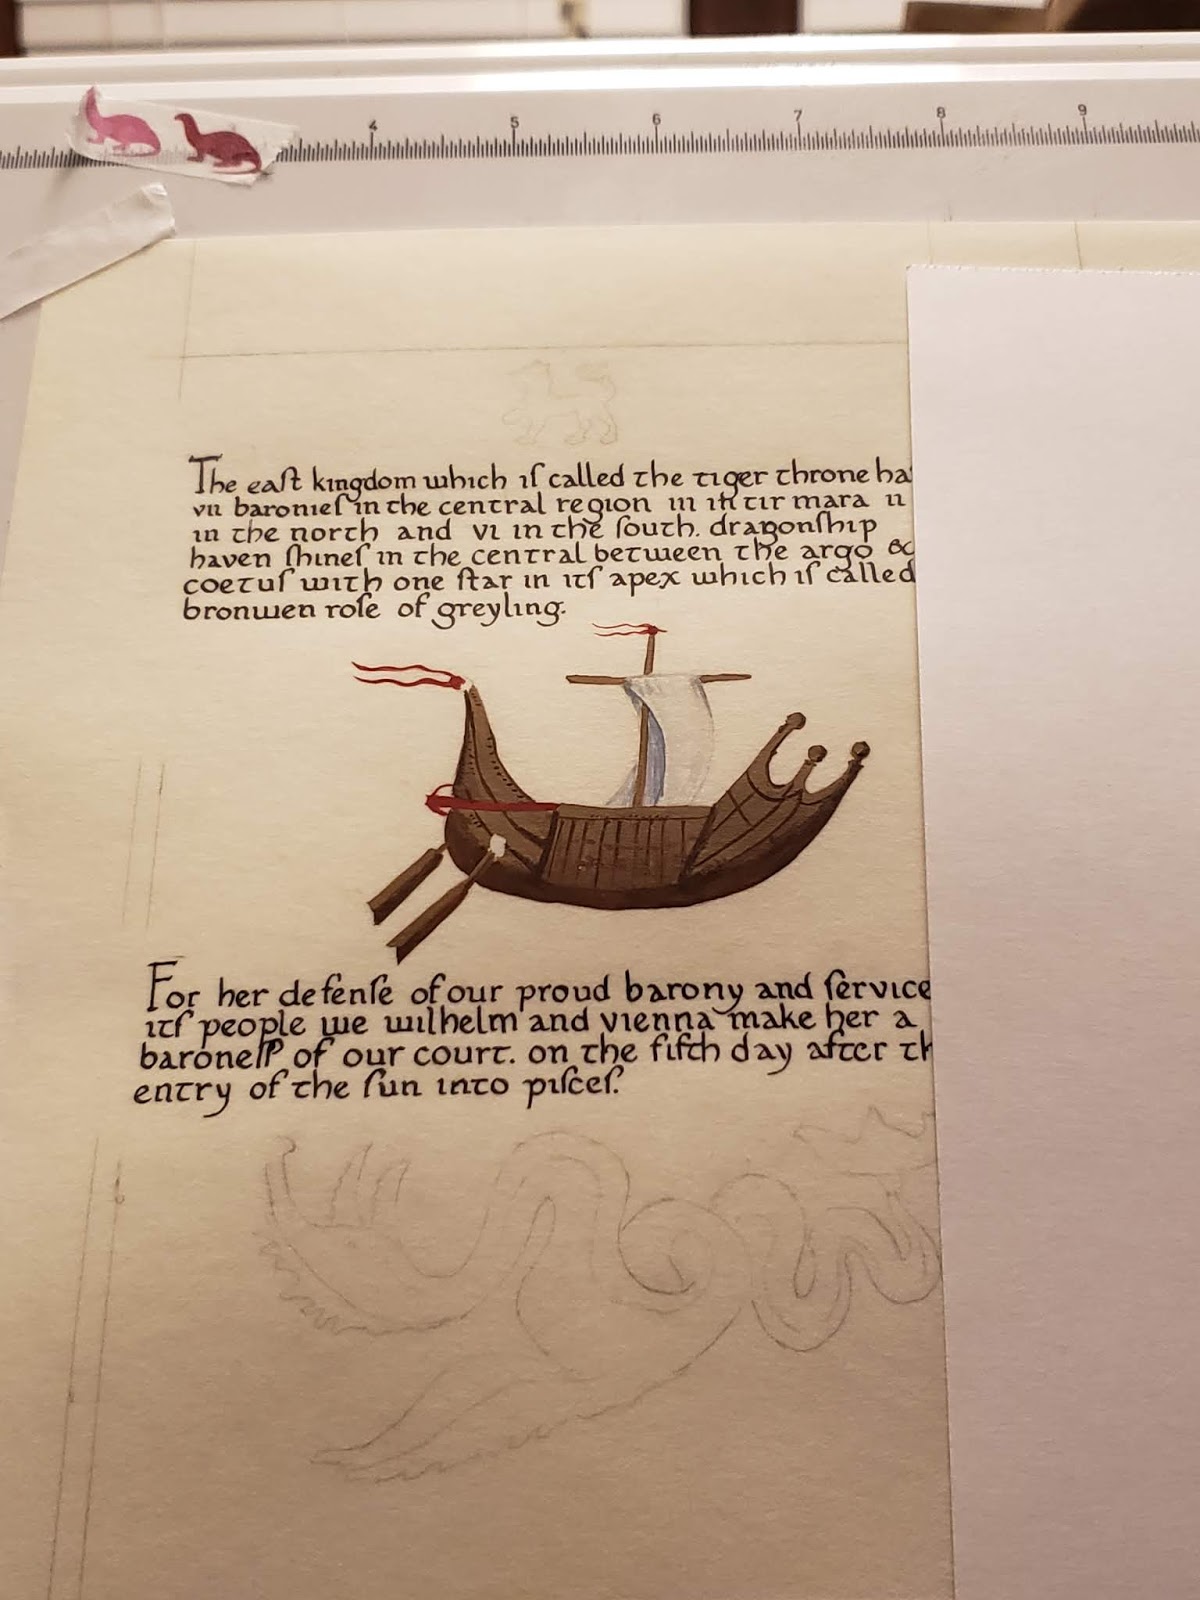 4 5 6 7 8 9
The eaſt kingdom which iſ called the tiger throne ha
vii baronieſ in the central region iii in tir mara ii
in the north and vi in the ſouth. dragonſhip
haven ſhineſ in the central between the argo &
coetuſ with one ſtar in itſ apex which iſ called
bronwen roſe of greyling.
For her defenſe of our proud barony and ſervice
itſ people we wilhelm and vienna make her a
baroneſſ of our court. on the fifth day after th
entry of the ſun into piſceſ.